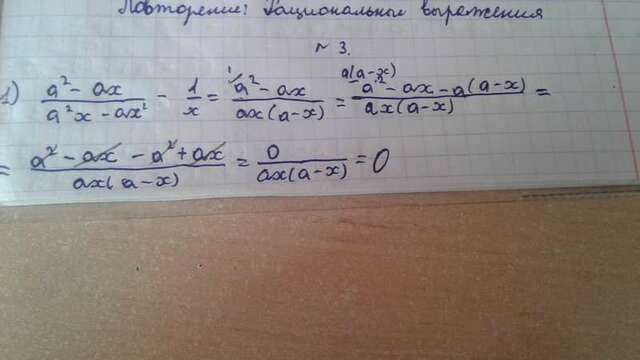 Повторение: Рациональные выражения
№ 3.
1) (a² - ax)/(a²x - ax²) - 1/x = (a² - ax)/(ax(a-x)) - a(a-x) = (a² - ax - a(a-x))/(ax(a-x)) =
= (a² - ax - a² + ax)/(ax(a-x)) = 0/(ax(a-x)) = 0